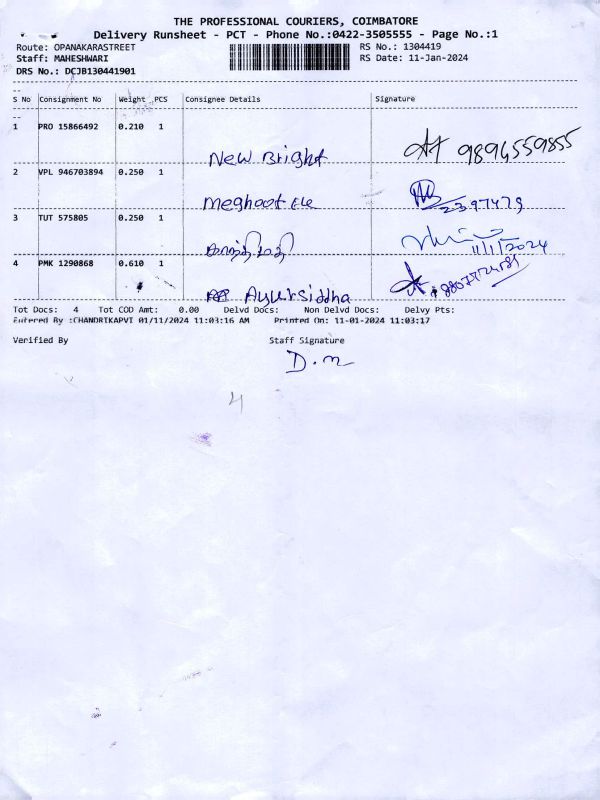 THE PROFESSIONAL COURIERS, COIMBATORE
Delivery Runsheet - PCT - Phone No.:0422-3505555 - Page No.:1
Route: OPANAKARASTREET RS No.: 1304419
Staff: MAHESHWARI RS Date: 11-Jan-2024
DRS No.: DCJB130441901
S No Consignment No Weight PCS Consignee Details Signature
1 PRO 15866492 0.210 1
New Bright 9894559855
2 VPL 946703894 0.250 1
2397479
3 TUT 575805 0.250 1
காந்திமதி 11/1/2024
4 PMK 1290868 0.610 1
Ayursiddha
Tot Docs: 4 Tot COD Amt: 0.00 Delvd Docs: Non Delvd Docs: Delvy Pts:
Entered By :CHANDRIKAPVI 01/11/2024 11:03:16 AM Printed On: 11-01-2024 11:03:17
Verified By Staff Signature
D.m
4